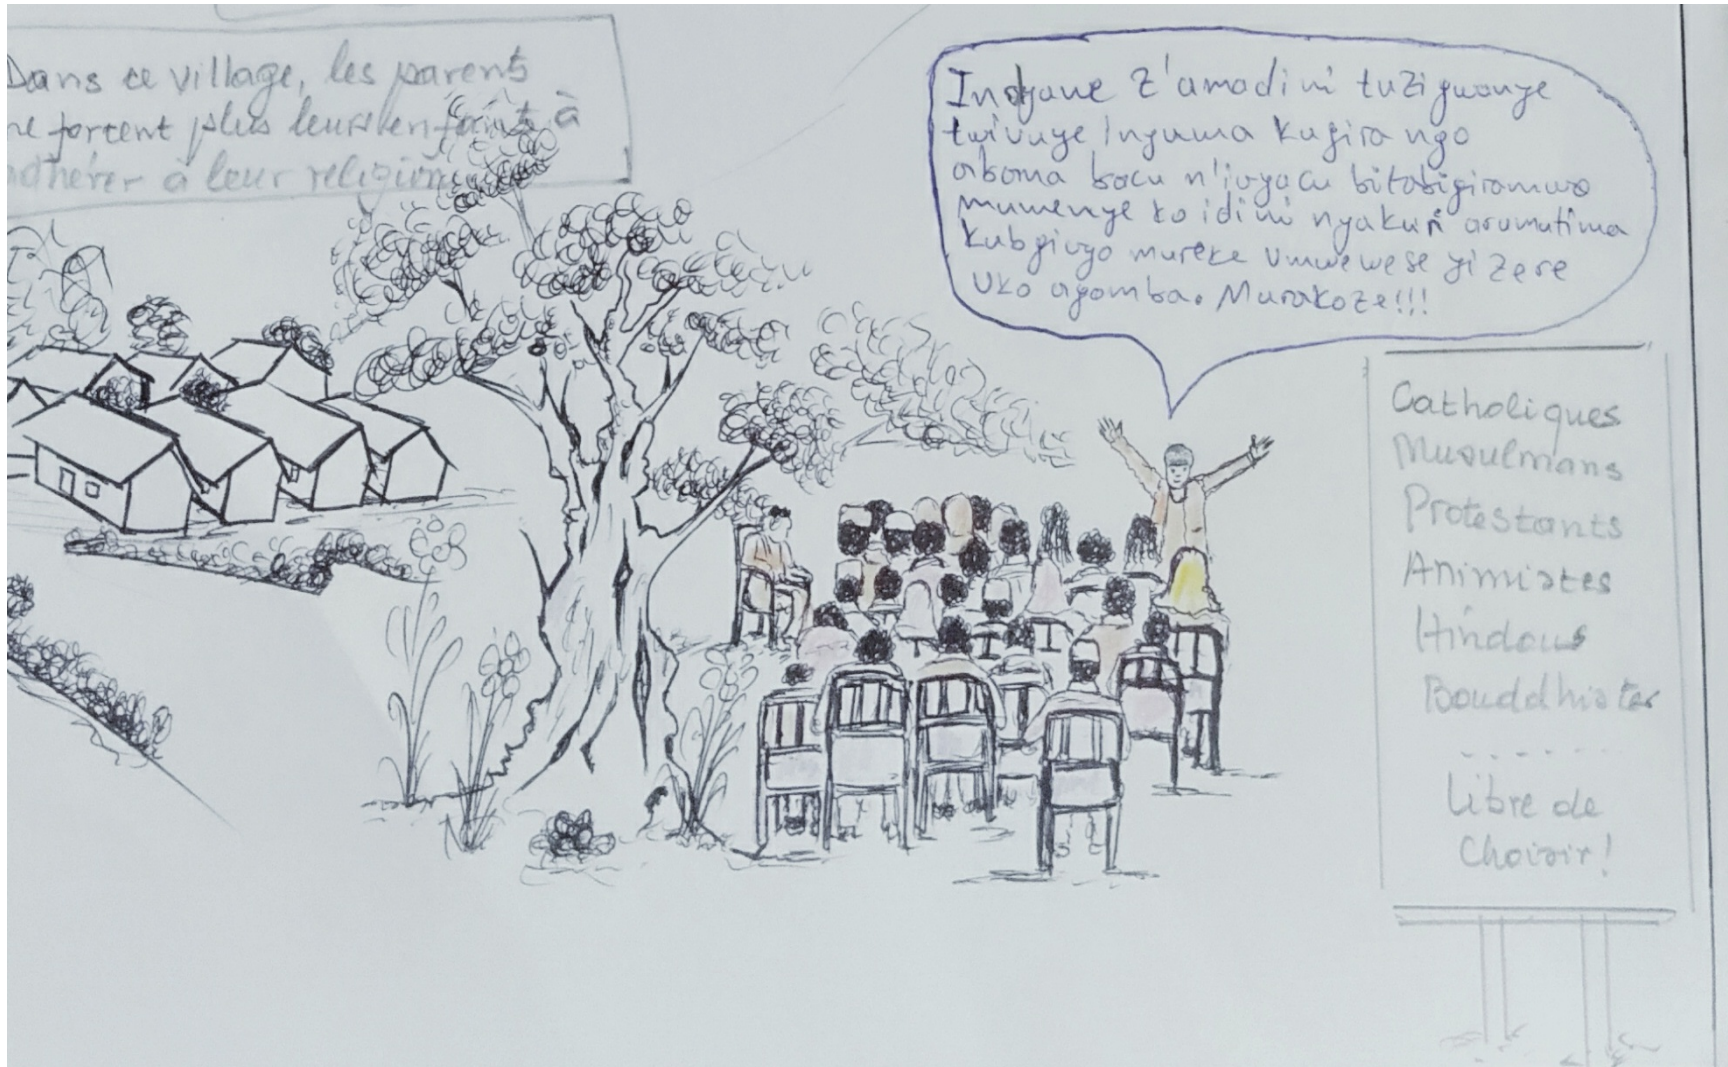 Dans ce village, les parents
ne forcent plus leurs enfants à
adhérer à leur religion
z'amadini tuzigwanye
twivuye inyuma kugira ngo
abana bacu n'ivyacu bitabigiramwo
mumenye ko idini nyakuri arumutima
kubgivyo mureke umwewese yizere
uko agomba. Murakoze!!!
Catholiques
Musulmans
Protestants
Animistes
Hindous
Bouddhistes
......
Libre de
Choisir!